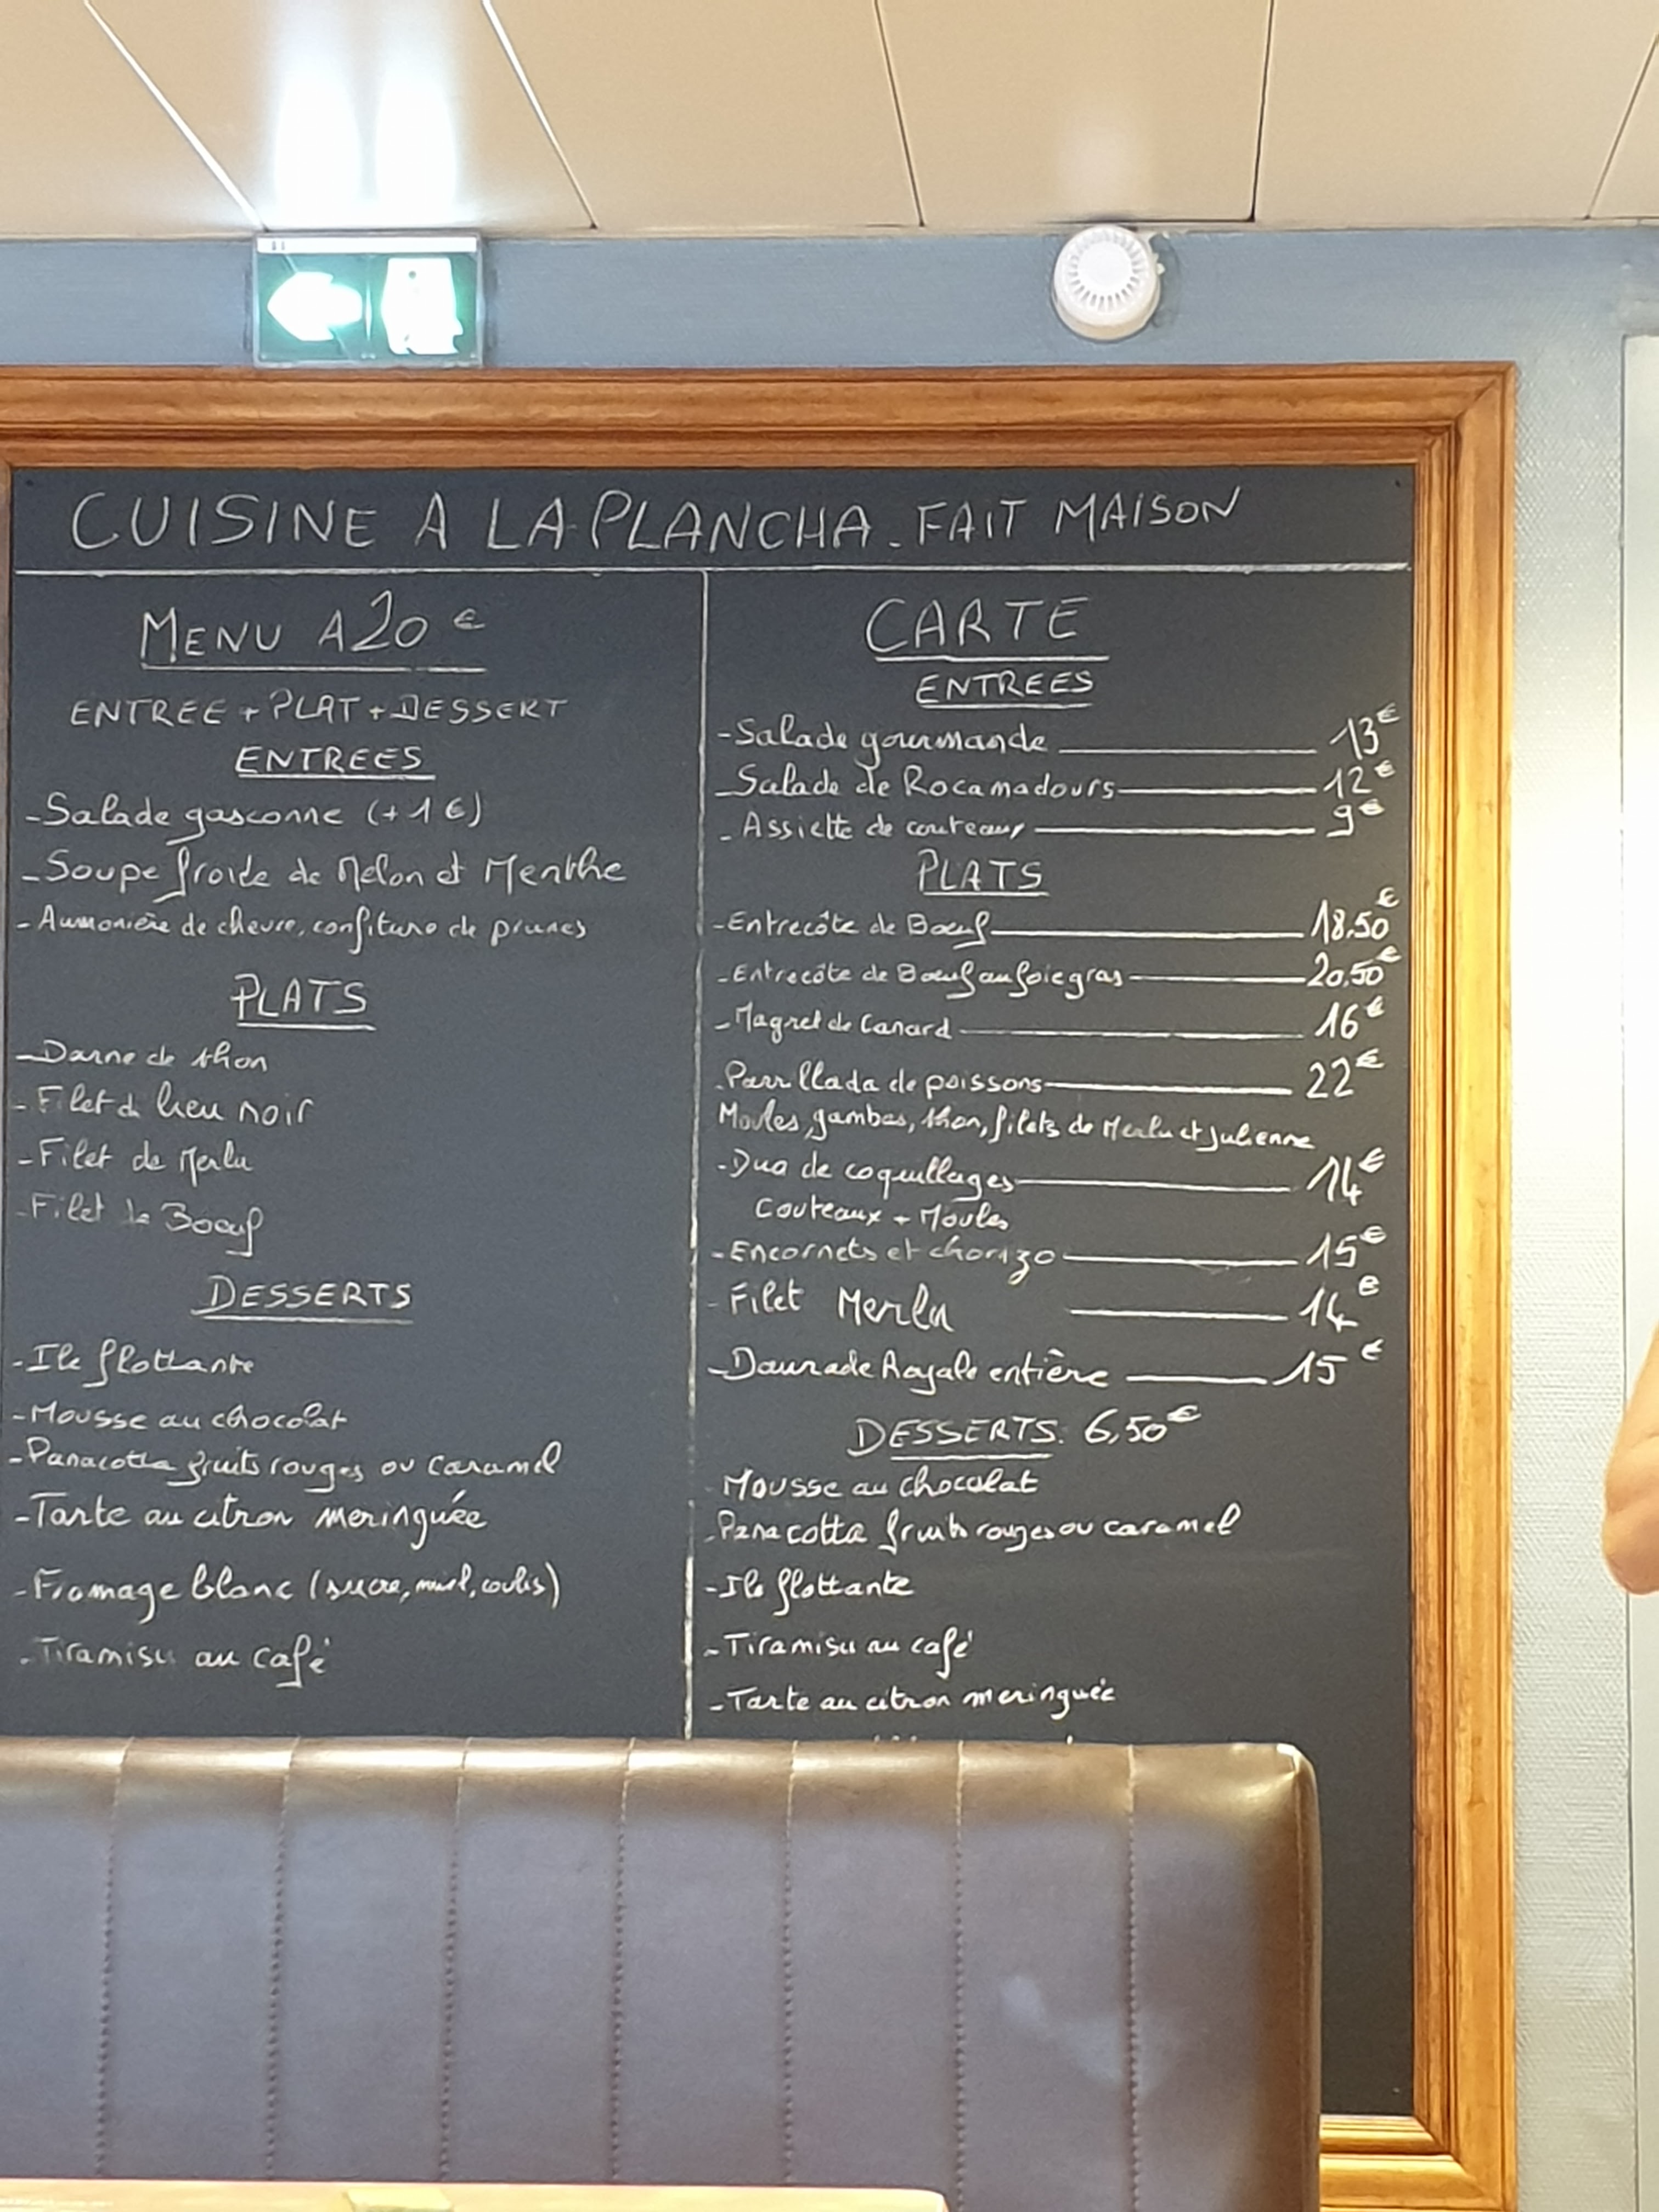 CUISINE A LA PLANCHA - FAIT MAISON
MENU A 20 €
ENTREE + PLAT + DESSERT
ENTREES
- Salade gasconne (+ 1 €)
- Soupe froide de Melon et Menthe
- Aumonière de chevre, confiture de prunes
PLATS
- Darne de thon
- Filet de lieu noir
- Filet de Merlu
- Filet de Boeuf
DESSERTS
- Ile flottante
- Mousse au chocolat
- Panacotta fruits rouges ou caramel
- Tarte au citron meringuée
- Fromage blanc (sucre, miel, coulis)
- Tiramisu au café
CARTE
ENTREES
- Salade gourmande 13€
- Salade de Rocamadours 12€
- Assiette de couteaux 9€
PLATS
- Entrecôte de Boeuf 18.50€
- Entrecôte de Boeuf au foie gras 20.50€
- Magret de Canard 16€
- Parrillada de poissons 22€
Moules, gambas, thon, filets de Merlu et Julienne
- Duo de coquillages 14€
Couteaux + Moules
- Encornets et chorizo 15€
- Filet Merlu 14€
- Daurade Royale entière 15€
DESSERTS. 6,50€
Mousse au chocolat
- Panacotta fruits rouges ou caramel
- Ile flottante
- Tiramisu au café
- Tarte au citron meringuée